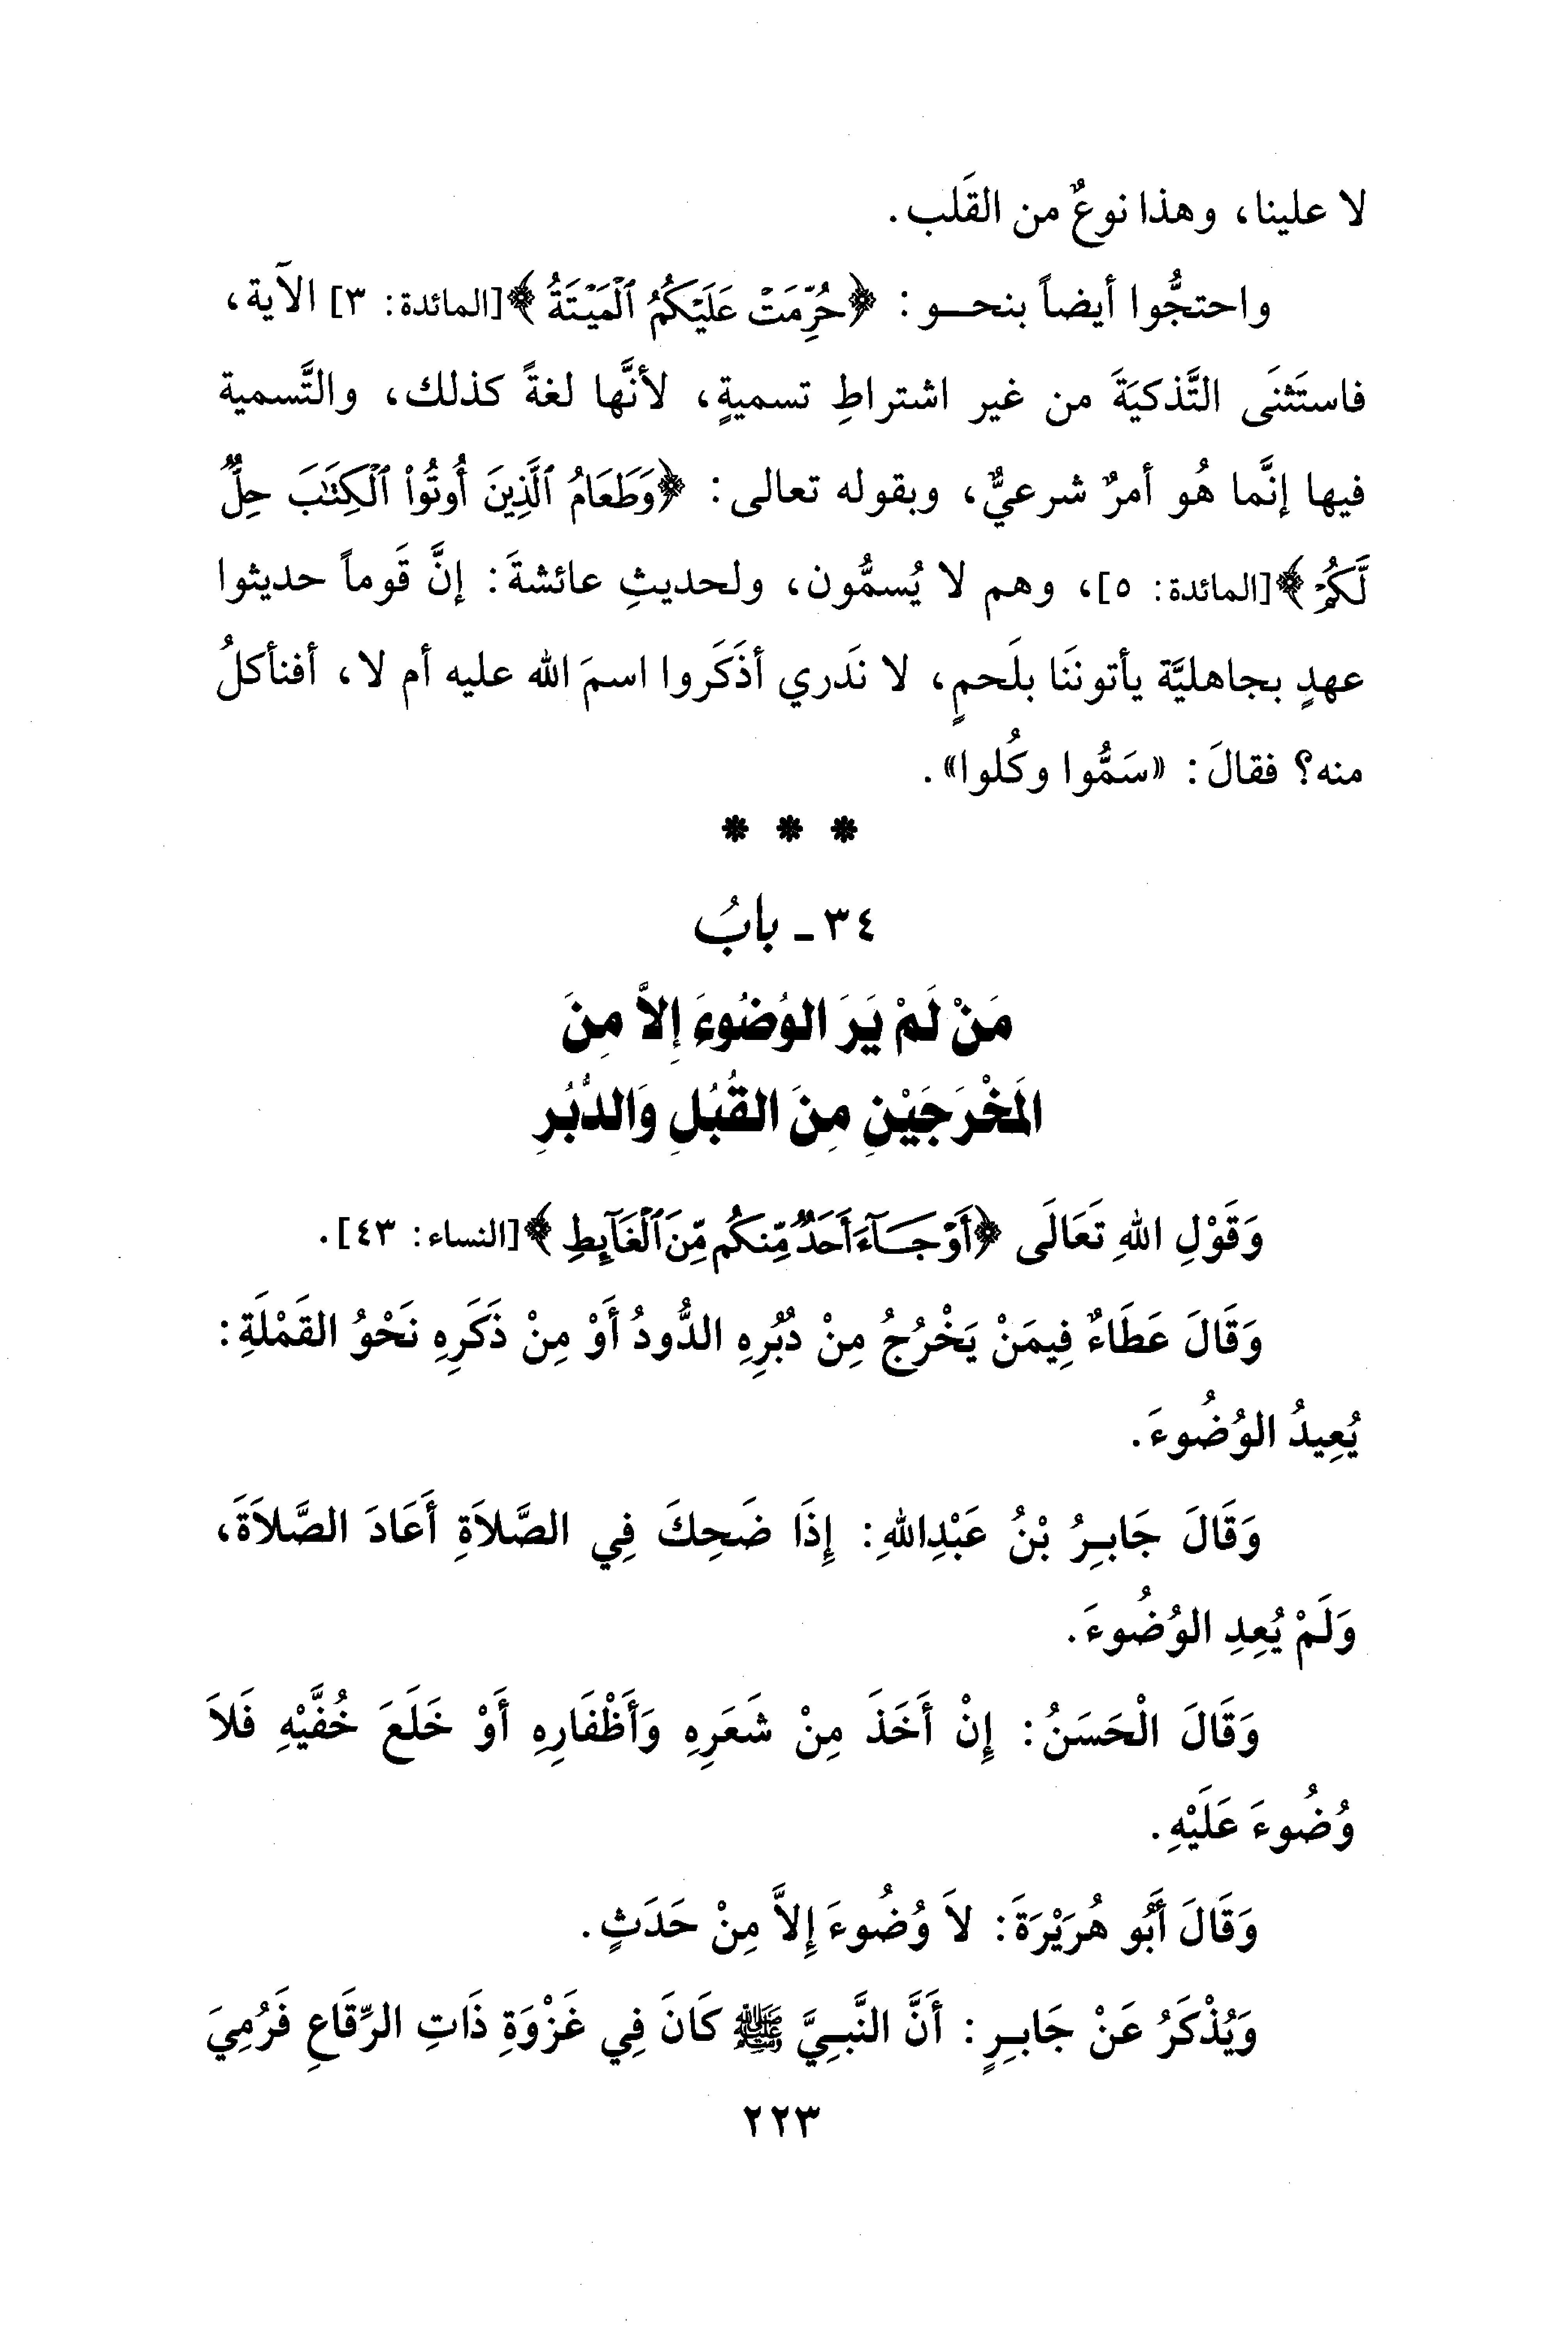 لا علينا، وهذا نوعٌ من القَلب.
واحتجُّوا أيضاً بنحـو: ﴿حُرِّمَتْ عَلَيْكُمُ ٱلْمَيْتَةُ﴾[المائدة: ٣] الآية،
فاستَثنَى التَّذكيَةَ من غير اشتراطِ تسميةٍ، لأنَّها لغةً كذلك، والتَّسمية
فيها إنَّما هُو أمرٌ شرعيٌّ، وبقوله تعالى: ﴿وَطَعَامُ ٱلَّذِينَ أُوتُواْ ٱلْكِتَٰبَ حِلٌّ
لَّكُمْ﴾[المائدة: ٥]، وهم لا يُسمُّون، ولحديثِ عائشةَ: إنَّ قَوماً حديثوا
عهدٍ بجاهليَّة يأتوننَا بلَحمٍ، لا نَدري أذَكَروا اسمَ الله عليه أم لا، أفنأكلُ
منه؟ فقالَ: «سَمُّوا وكُلوا».
* * *
٣٤ - بابُ
مَنْ لَمْ يَرَ الوُضُوءَ إِلاَّ مِنَ
المَخْرَجَيْنِ مِنَ القُبُلِ وَالدُّبُرِ
وَقَوْلِ اللهِ تَعَالَى ﴿أَوْ جَآءَ أَحَدٌ مِّنكُم مِّنَ ٱلْغَآئِطِ﴾[النساء: ٤٣].
وَقَالَ عَطَاءٌ فِيمَنْ يَخْرُجُ مِنْ دُبُرِهِ الدُّودُ أَوْ مِنْ ذَكَرِهِ نَحْوُ القَمْلَةِ:
يُعِيدُ الوُضُوءَ.
وَقَالَ جَابِرُ بْنُ عَبْدِاللهِ: إِذَا ضَحِكَ فِي الصَّلاَةِ أَعَادَ الصَّلاَةَ،
وَلَمْ يُعِدِ الوُضُوءَ.
وَقَالَ الْحَسَنُ: إِنْ أَخَذَ مِنْ شَعَرِهِ وَأَظْفَارِهِ أَوْ خَلَعَ خُفَّيْهِ فَلاَ
وُضُوءَ عَلَيْهِ.
وَقَالَ أَبُو هُرَيْرَةَ: لاَ وُضُوءَ إِلاَّ مِنْ حَدَثٍ.
وَيُذْكَرُ عَنْ جَابِرٍ: أَنَّ النَّبِيَّ ﷺ كَانَ فِي غَزْوَةِ ذَاتِ الرِّقَاعِ فَرُمِيَ
٢٢٣